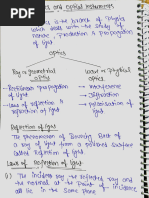 and optical Instruments
is the branch of Physics
which deals with the study of
nature, Production & Propagation
of light
optics
Ray or geometrical
optics
wave or Physical
optics
→ Rectilinear Propagation
of light
→ Laws of reflection &
refraction of light
→ Interference
→ Diffraction
→ Polarisation
of light
Reflection of light
The phenomenon of Bouncing Back
of a ray of light from a polished
surface called Reflection of light.
Laws of Reflection of light
(i) The incident ray the reflected ray and
the normal at the Point of incidence
all lie in the same plane